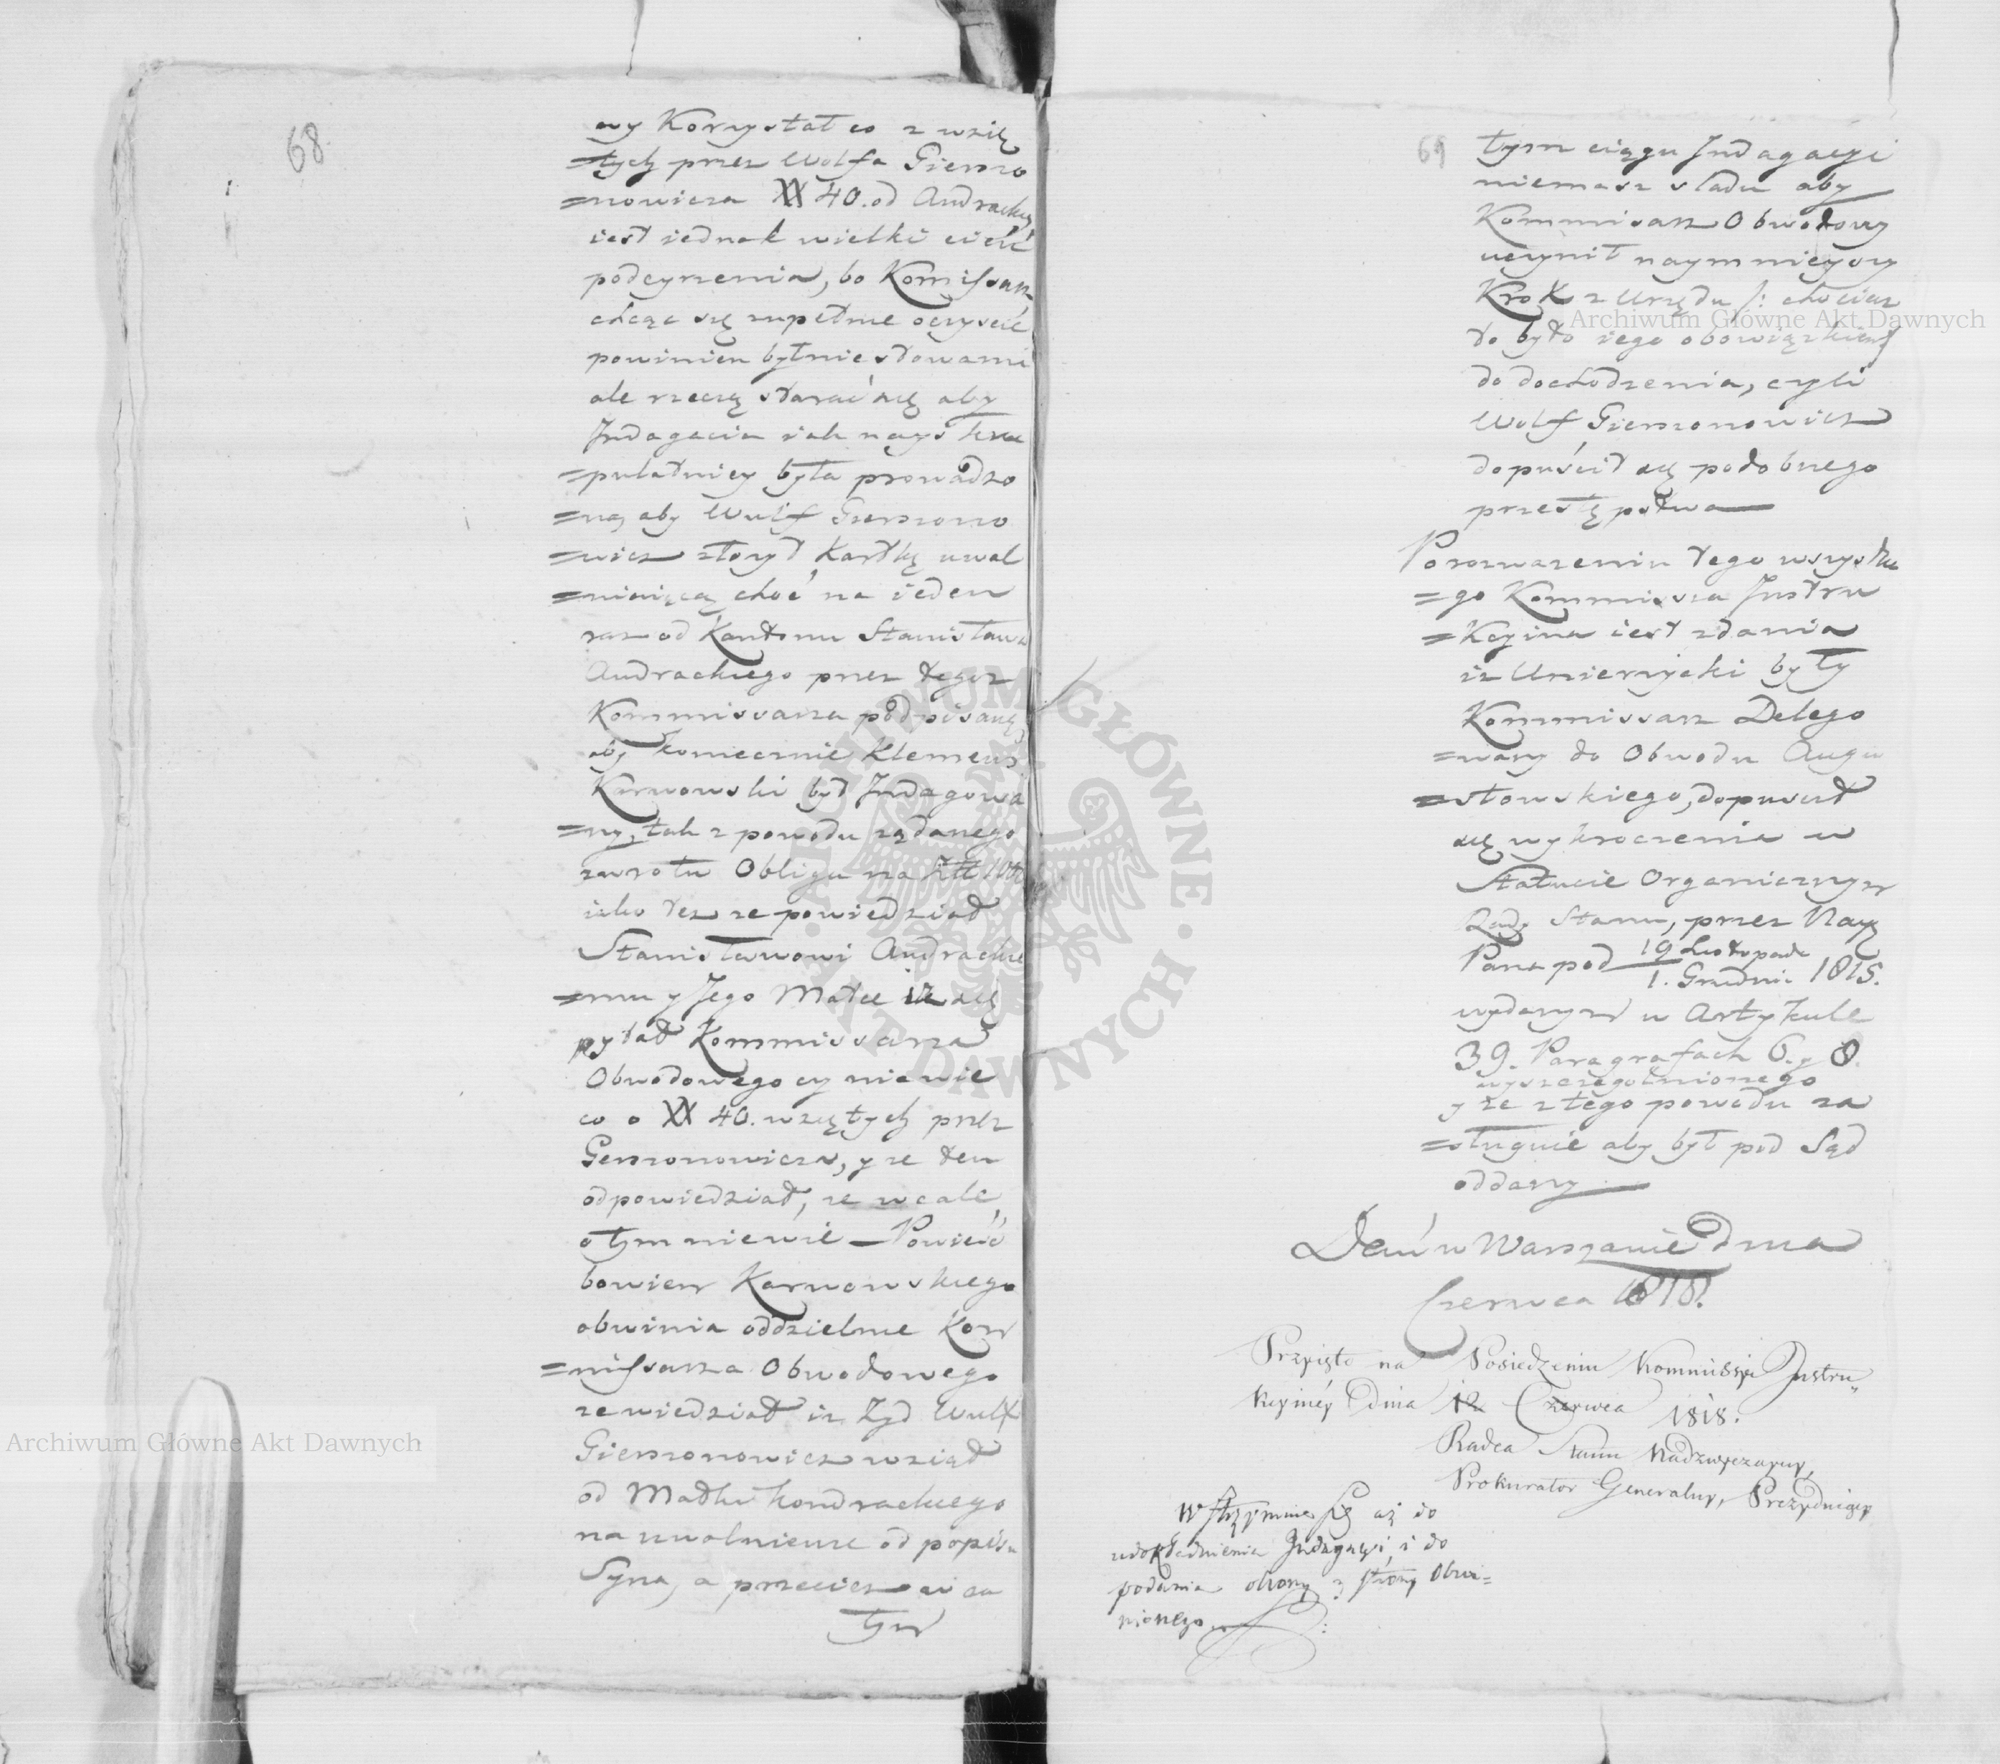 68.
wy Korzystał co z wzię
=tych przez Wolfa Gierszo
=nowicza XX 40. od Andrackiey
iest iednak wielki cień
podeyrzenia, bo Komissarz
chcąc się zupełnie oczyścić
powinien był nie słowami
ale rzeczą starać się aby
Indagacia iak nayskru
=pulatniey była prowadzo
=ną, aby Wulf Gierszono
=wicz złożył Kartkę uwal
=niaiącą choć na ieden
raz od Kantonu Stanisława
Andrackiego przez tegoż
Kommissarza podpisaną,
aby koniecznie Klemens
Karnowski był Indagowa
=ny, tak z powodu żądanego
zwrotu Obligu na Złł
iako też że powiedział
Stanisławowi Andrackie
=mu y Jego Matce iż się
pytał Kommissarza
Obwodowego czy nie wie
co o XX 40. wziętych przez
Gerszonowicza, y że ten
odpowiedział, że wcale
o tym niewie — Powieść
bowiem Karnowskiego
obwinia oddzielnie Kom
=missarza Obwodowego
że wiedział iż Żyd Wulf
Gierszonowicz wziął
od Matki Kondrackiego
na uwolnienie od popisu
Syna, a przecież w ca
tym
69
tym ciągu Indagacyi
niemasz sladu aby
Kommisarz Obwodowy
uczynił naymnieyszy
Krok z Urzędu /: chociaz
to było iego obowiązkiem/
do dochodzenia, czyli
Wolf Gierszonowicz
dopuścił się podobnego
przestępstwa
Po rozwazeniu tego wszystkie
=go Kommissia Instru
=Kcyina iest zdania
iż Unierzycki były
Kommissarz Delego
=wany do Obwodu Augu
=stowskiego, dopuścił
się wykroczenia w
Statucie Organicznym
Rady Stanu, przez Nay
Pana pod 19 Listopada
1. Grudnia 1815.
wydanym w Artykule
39. Paragrafach 6. y 8.
wyszczegolnionego
y że z tego powodu za
=sługuie aby był pod Sąd
oddany
Dan w Warszawie dnia
Czerwca 1818.
Przyięto na Posiedzeniu Kommissyi Instru„
kcyinéy dnia 12 Czerwca 1818.
Radca Stanu Nadzwyczayny,
Prokurator Generalny, Prezyduiący
Wstrzymuie się aż do
udokładnienia Indagacyi, i do
podania obrony z strony Obwi=
nionego
Archiwum Główne Akt Dawnych
Archiwum Główne Akt Dawnych
ARCHIWUM GŁÓWNE · AKT DAWNYCH ·